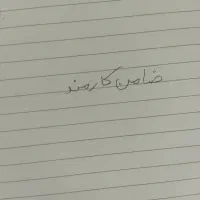 ضامن کارمند